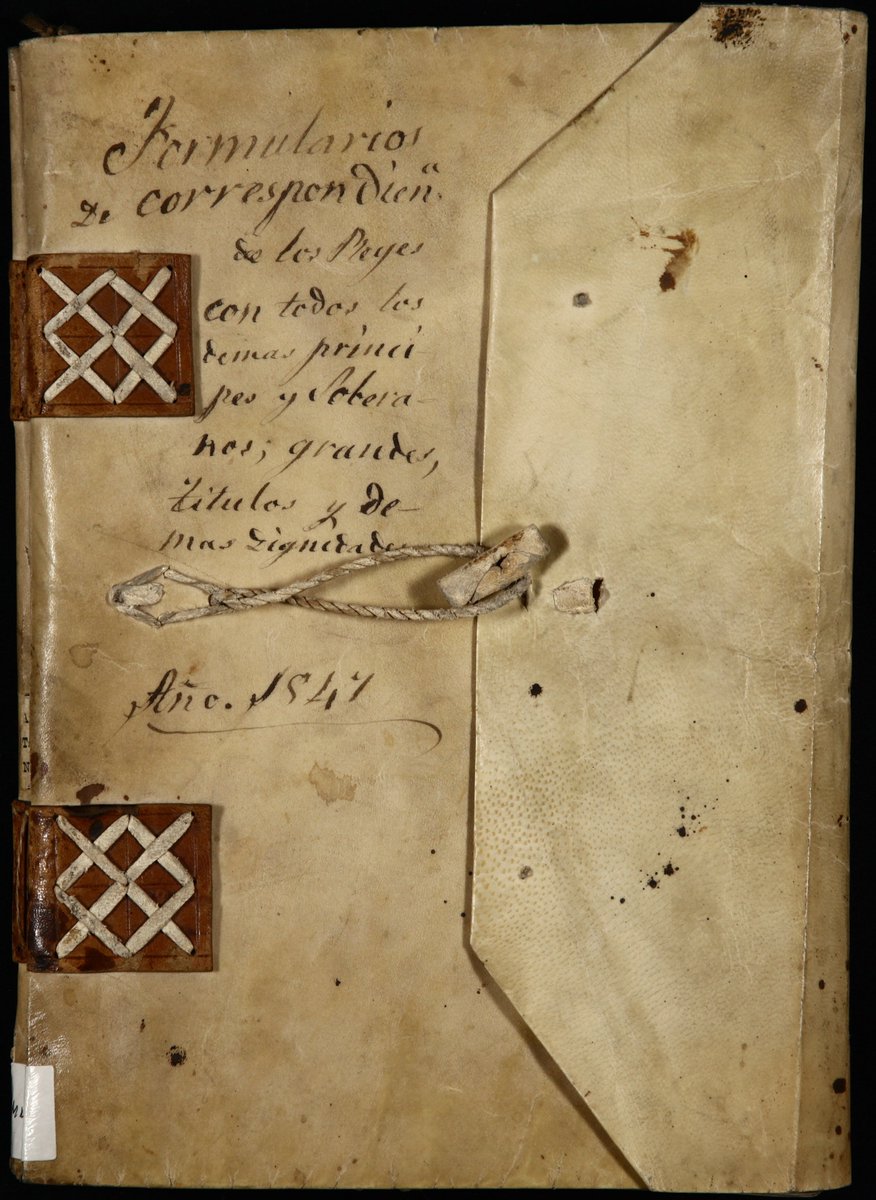 Formularios
De correspondienª.
de los Reyes
con todos los
demas princi
pes y Sobera-
nos; grandes,
titulos y de-
mas dignidades
Año. 1547